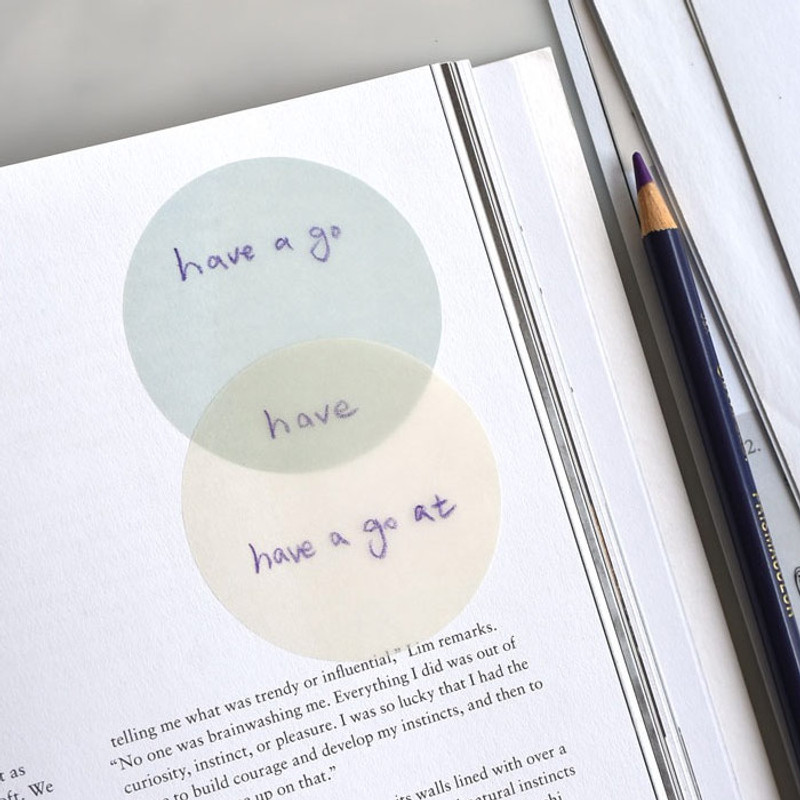 have a go
have
have a go at
telling me what was trendy or influential,” Lim remarks.
“No one was brainwashing me. Everything I did was out of
curiosity, instinct, or pleasure. I was so lucky that I had the
to build courage and develop my instincts, and then to
up on that.”
walls lined with over a
natural instincts
t as
We
2.
PRISMACOLOR